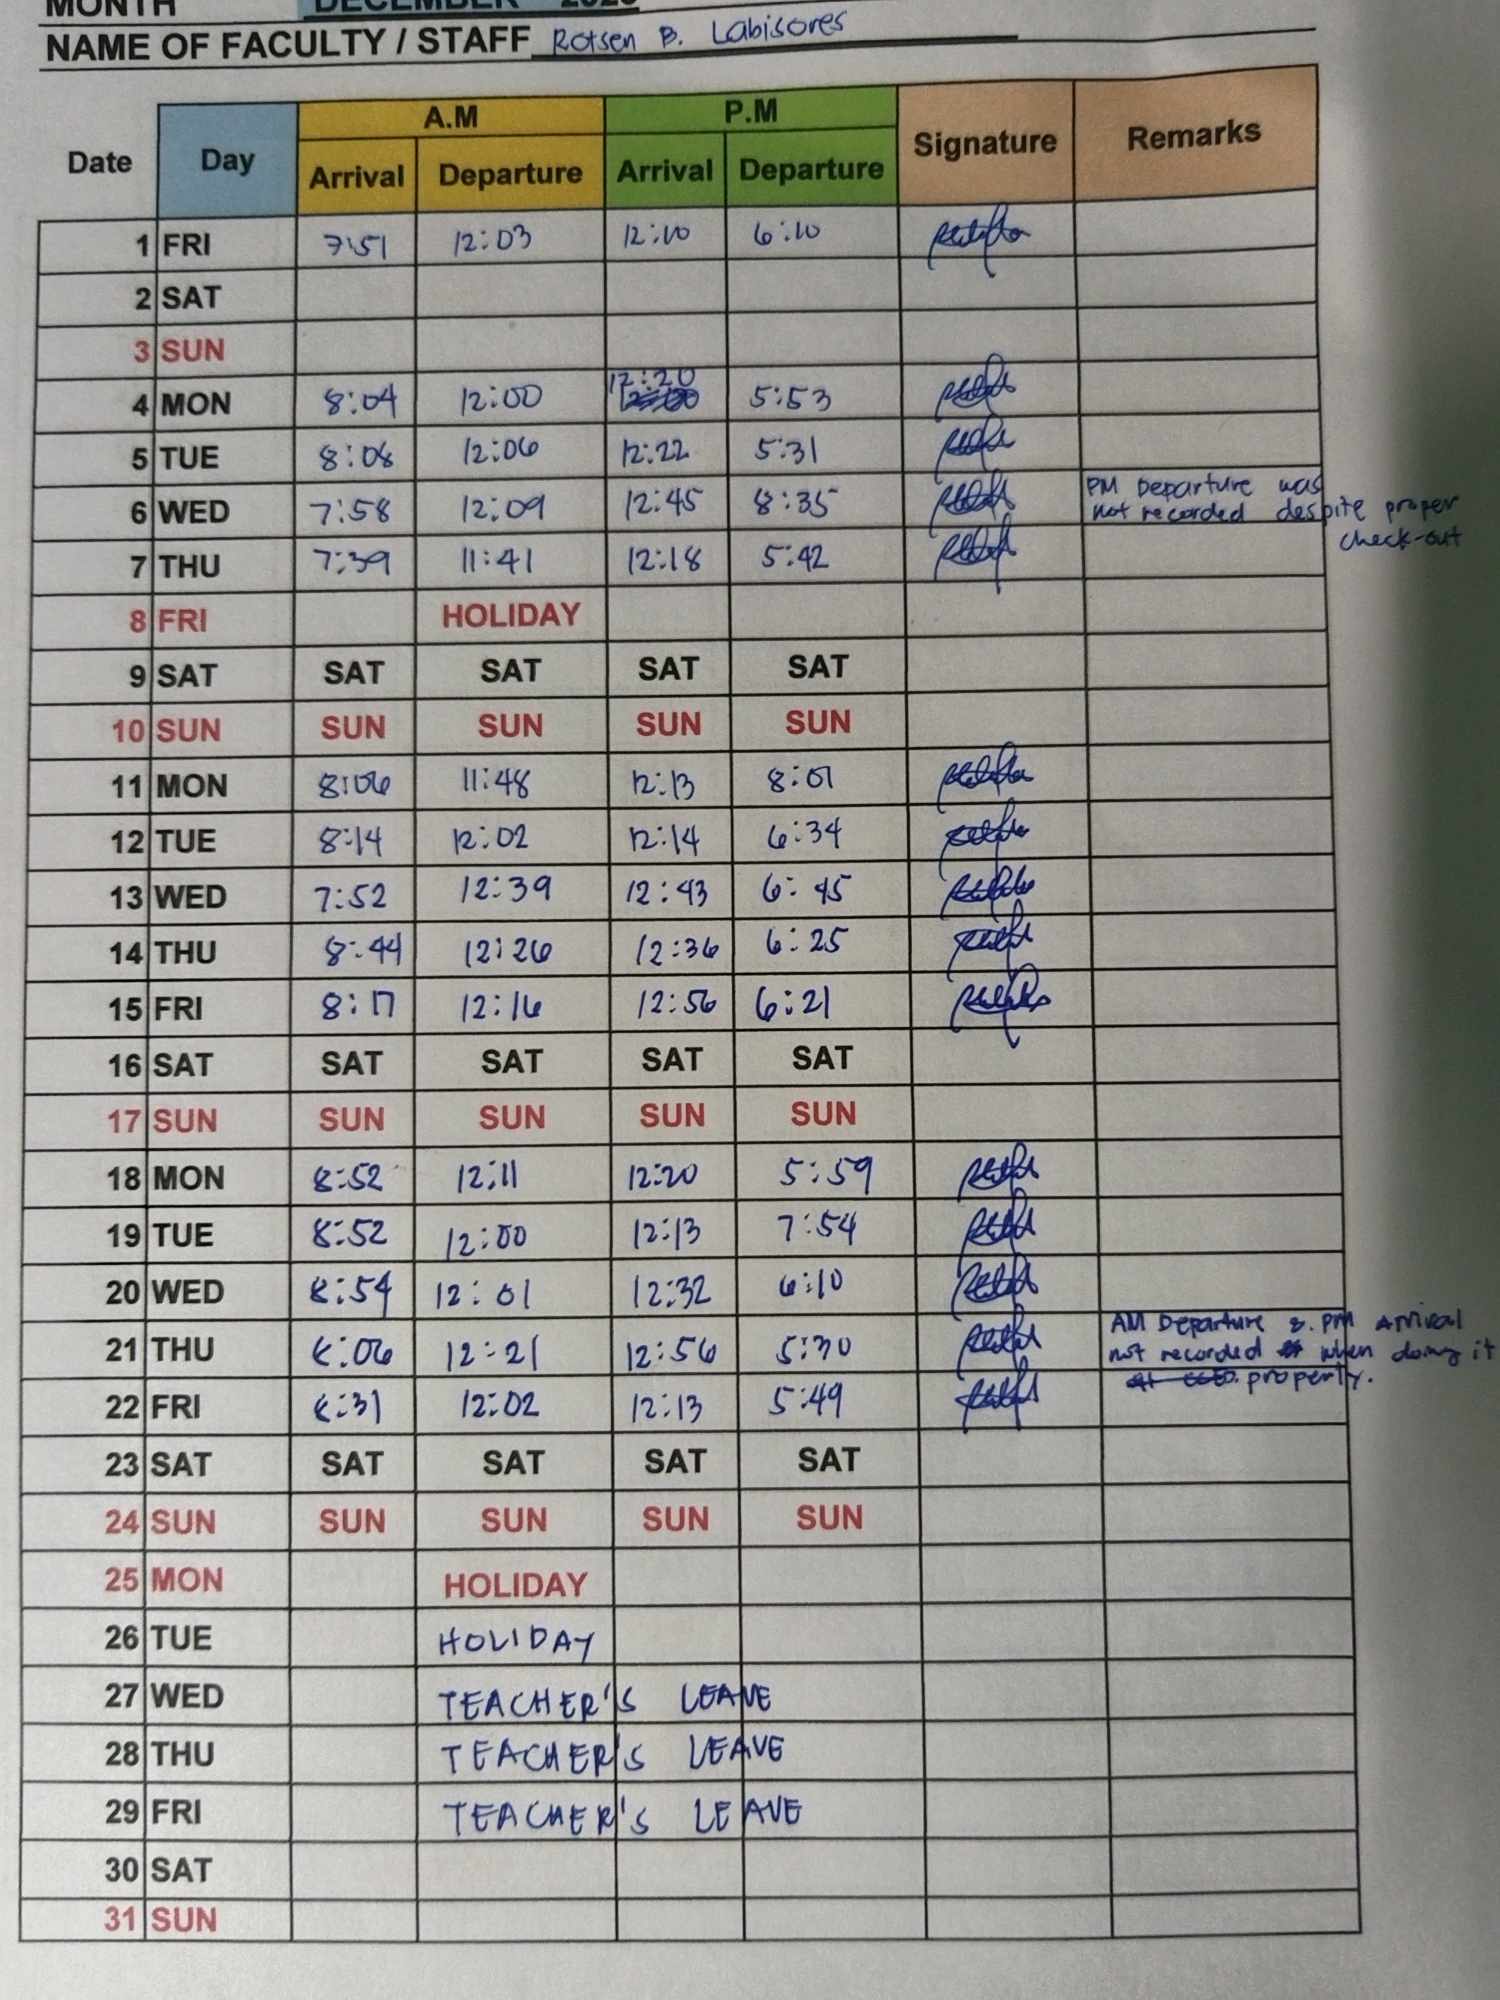 MONTH DECEMBER
NAME OF FACULTY / STAFF Rotsen B. Labisores
Date Day A.M P.M Signature Remarks
Arrival Departure Arrival Departure
1 FRI 7:51 12:03 12:10 6:10
2 SAT
3 SUN
4 MON 8:04 12:00 12:20 5:53
5 TUE 8:08 12:06 12:22 5:31
6 WED 7:58 12:09 12:45 8:35 PM Departure was
not recorded despite proper
check-out
7 THU 7:39 11:41 12:18 5:42
8 FRI HOLIDAY
9 SAT SAT SAT SAT SAT
10 SUN SUN SUN SUN SUN
11 MON 8:06 11:48 12:13 8:01
12 TUE 8:14 12:02 12:14 6:34
13 WED 7:52 12:39 12:43 6:45
14 THU 8:44 12:26 12:36 6:25
15 FRI 8:17 12:16 12:56 6:21
16 SAT SAT SAT SAT SAT
17 SUN SUN SUN SUN SUN
18 MON 8:52 12:11 12:20 5:59
19 TUE 8:52 12:00 12:13 7:54
20 WED 8:54 12:01 12:32 6:10
21 THU 8:06 12:21 12:56 5:30 AM Departure & PM Arrival
not recorded when doing it
properly.
22 FRI 8:31 12:02 12:13 5:49
23 SAT SAT SAT SAT SAT
24 SUN SUN SUN SUN SUN
25 MON HOLIDAY
26 TUE HOLIDAY
27 WED TEACHER'S LEAVE
28 THU TEACHER'S LEAVE
29 FRI TEACHER'S LEAVE
30 SAT
31 SUN